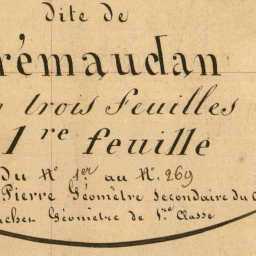 dite de
rémaudan
trois feuilles
1re feuille
du No 1er au No. 269
Pierre Géomètre Secondaire du
Géometre de 1re Classe